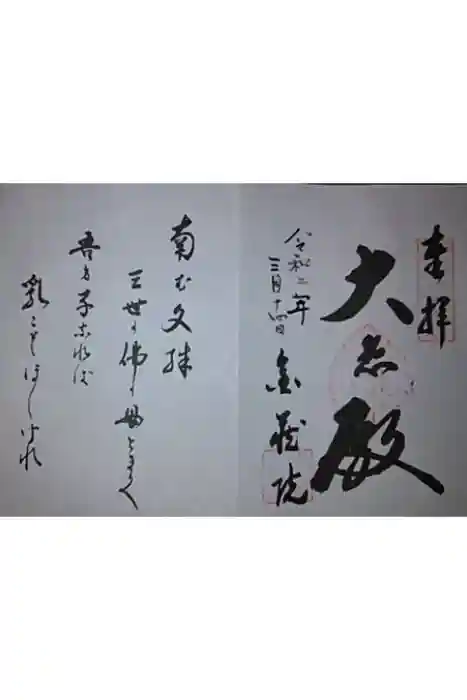 奉拝
大殿
令和二年
三月十四日
金蔵院
南む文殊
三世の佛の母ときく
吾も子なれば
乳こそほしけれ